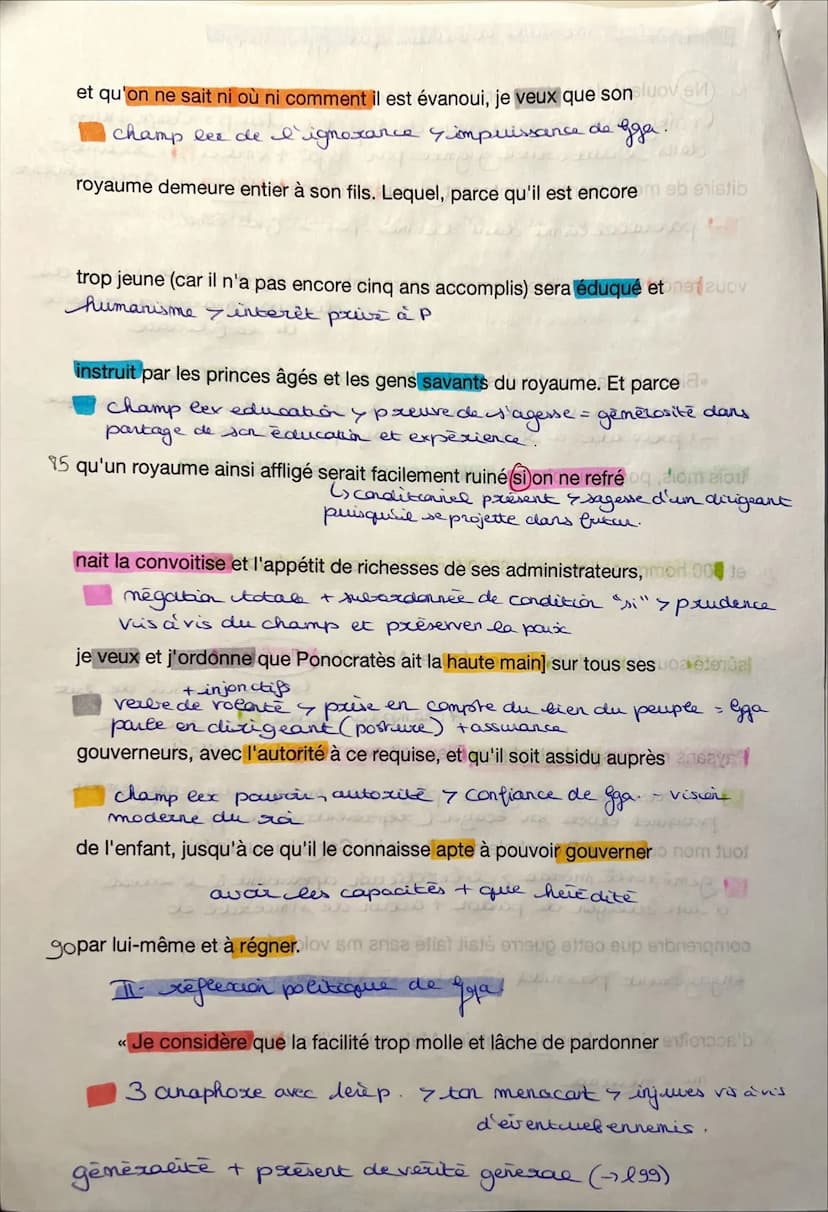 et qu'on ne sait ni où ni comment il est évanoui, je veux que son
champ lex de l'ignorance > impuissance de Gga.
royaume demeure entier à son fils. Lequel, parce qu'il est encore
trop jeune (car il n'a pas encore cinq ans accomplis) sera éduqué et
humanisme > intérêt privé à P
instruit par les princes âgés et les gens savants du royaume. Et parce
champ lex education > preuve de s'agesse = générosité dans
partage de son éducation et expérience.
85 qu'un royaume ainsi affligé serait facilement ruiné si on ne refré
↳ conditionnel présent > sagesse d'un dirigeant
puisqu'il se projette dans futur.
nait la convoitise et l'appétit de richesses de ses administrateurs,
négation totale + subordonnée de condition "si" > prudence
vis à vis du champ et préserver la paix
je veux et j'ordonne que Ponocratès ait la haute main] sur tous ses
+ injonctifs
verbe de volonté > prise en compte du bien du peuple = Gga
parle en dirigeant (posture) + assurance
gouverneurs, avec l'autorité à ce requise, et qu'il soit assidu auprès
champ lex pouvoir, autorité > confiance de Gga. - vision
moderne du roi
de l'enfant, jusqu'à ce qu'il le connaisse apte à pouvoir gouverner
avoir les capacités + que hérédité
90 par lui-même et à régner.
II- réflexion politique de Gga
« Je considère que la facilité trop molle et lâche de pardonner
3 anaphore avec > ton menacant > injures vis à vis
d'éventuels ennemis.
généralité + présent de vérité générale (→ l 99)